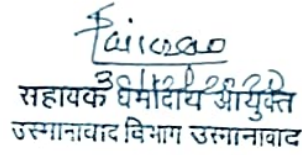 सहायक धर्मादाय आयुक्त
उस्मानाबाद विभाग उस्मानाबाद